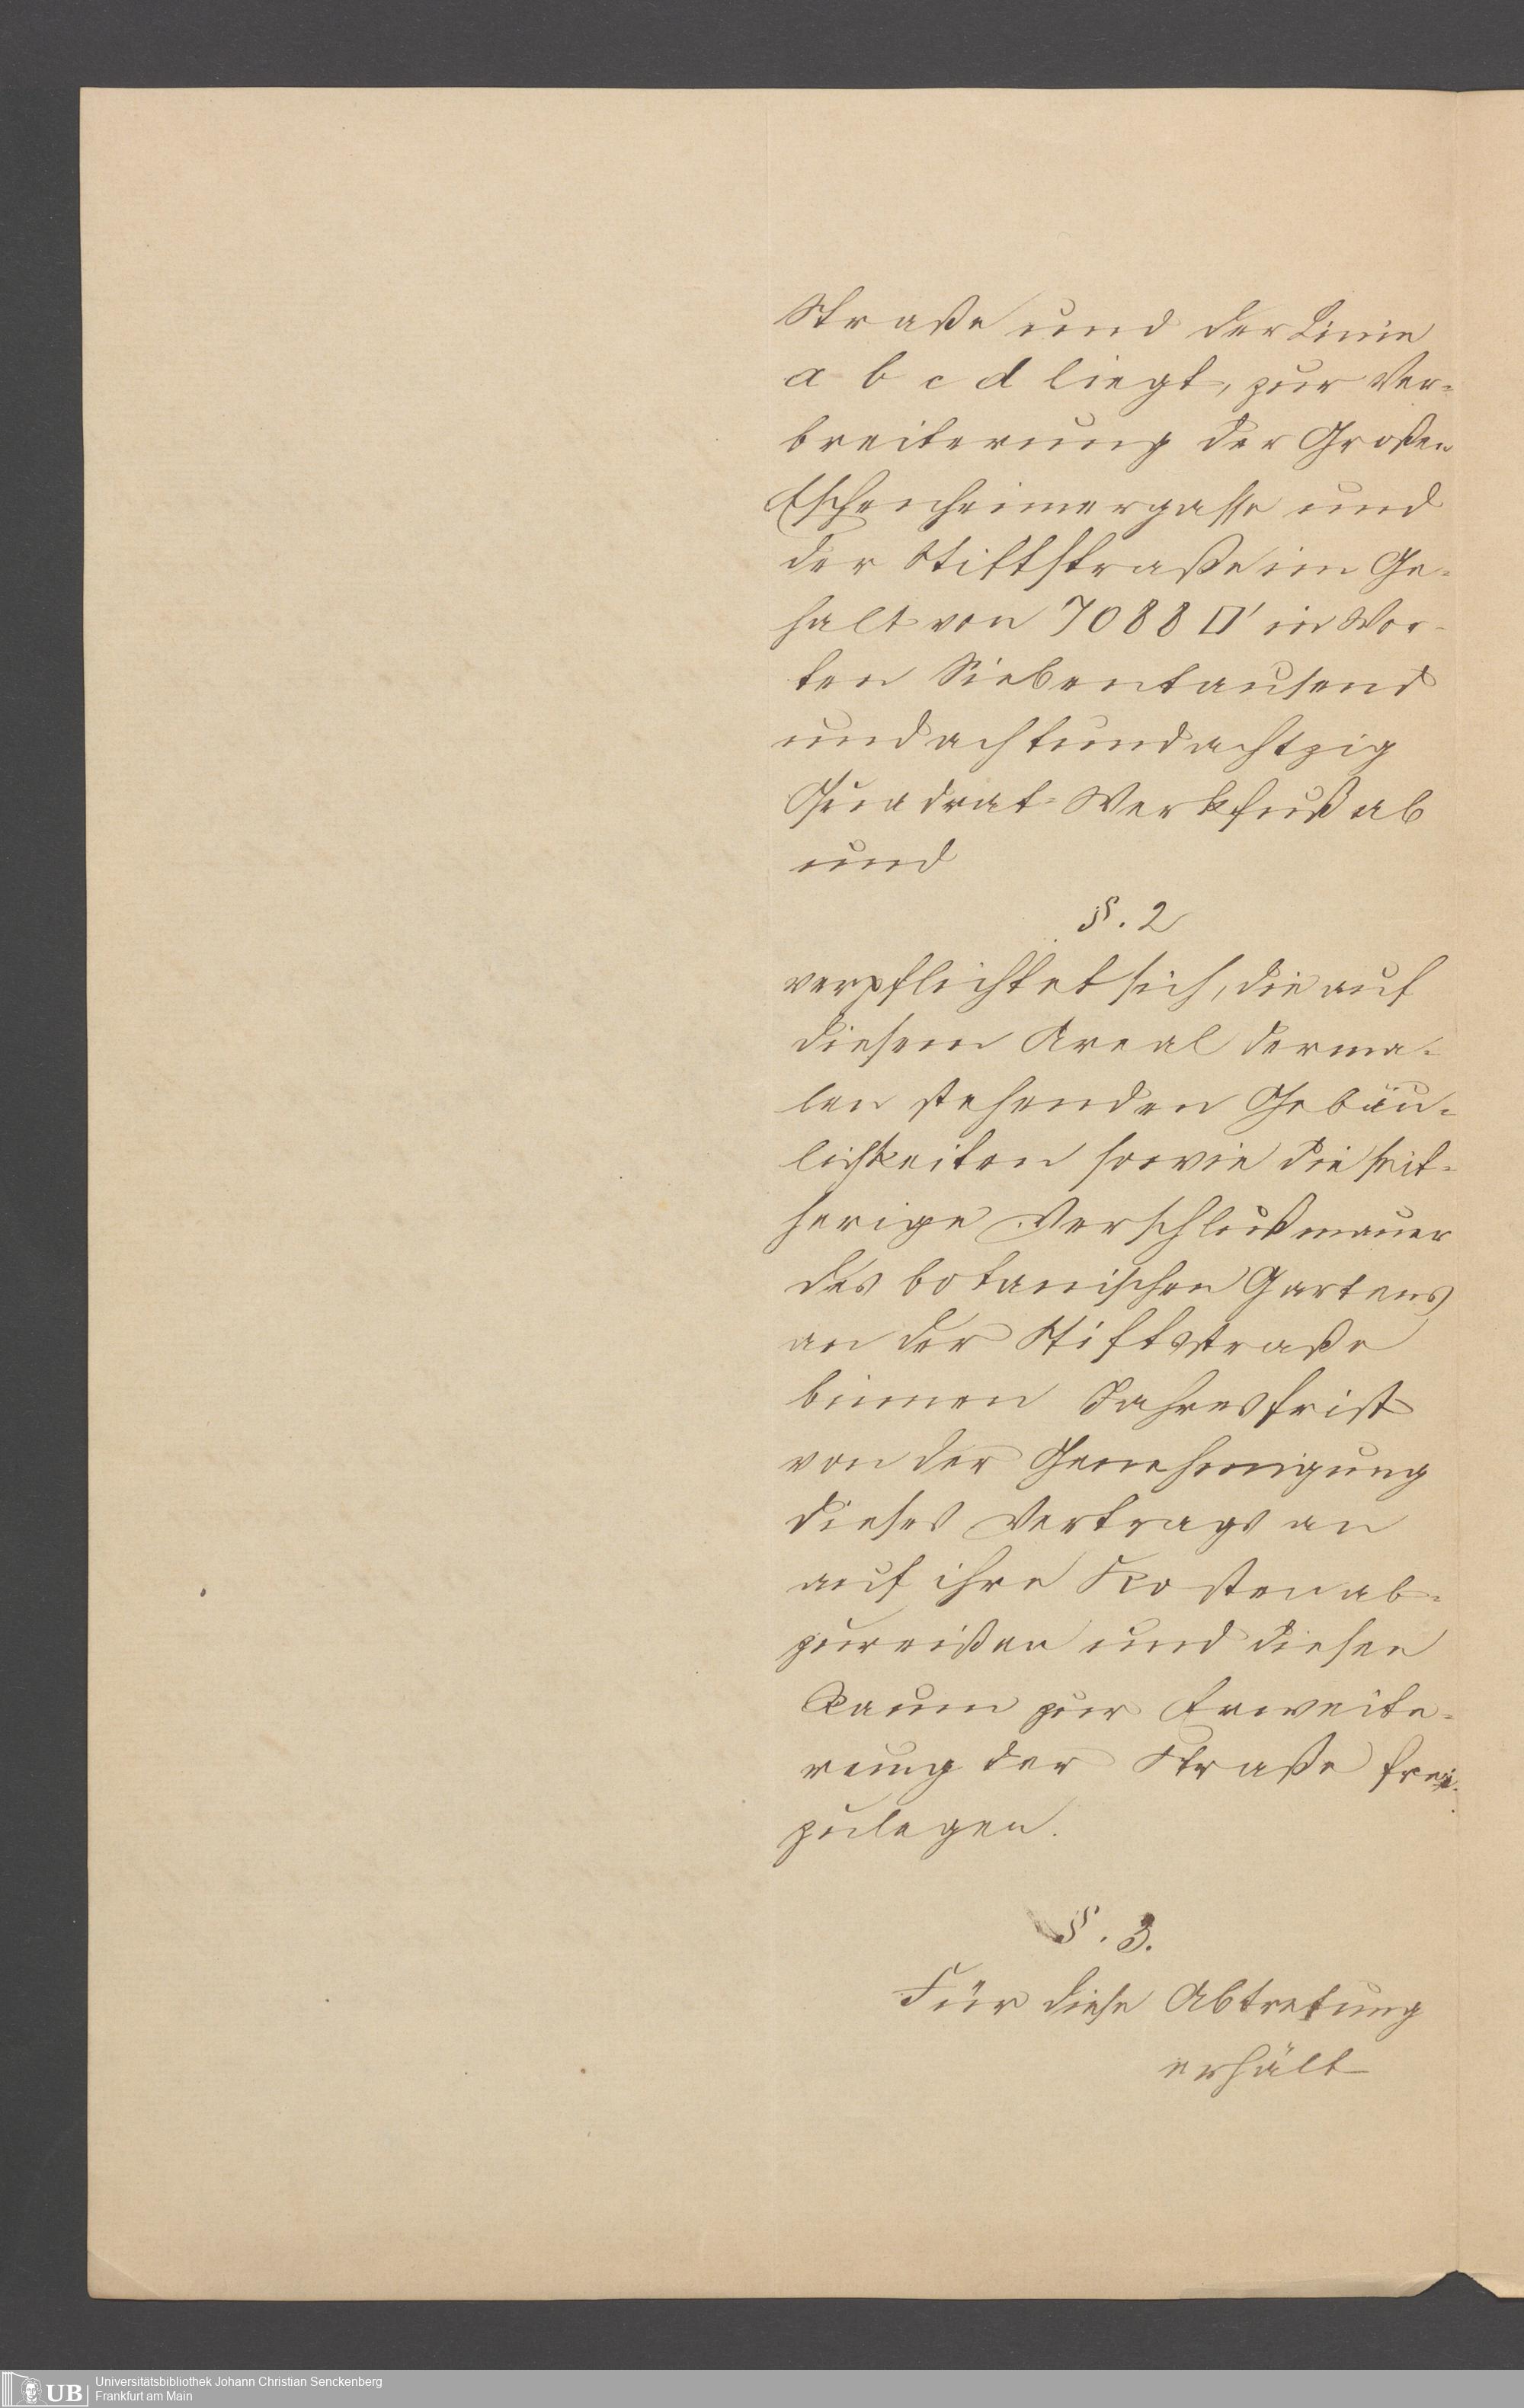 Straße und der Linie
a b c d liegt, zur Ver-
breiterung der Großen
Eschenheimergasse und
der Stiftstraße im Ge-
halt von 7088 □' in Wor-
ten Siebentausend
undachtundachtzig
Quadrat-Werkfuß ab
und
§. 2
verpflichtet sich, die auf
diesem Areal derma-
len stehenden Gebäu-
lichkeiten sowie die seit-
herige Verschlußmauer
des botanischen Gartens
an der Stiftsstraße
binnen Jahresfrist
von der Genehmigung
dieses Vertrags an
auf ihre Kosten ab-
zureißen und diesen
Raum zur Erweite-
rung der Straße frei-
zulegen.
§. 3.
Für diese Abtretung
erhält
UB
Universitätsbibliothek Johann Christian Senckenberg
Frankfurt am Main